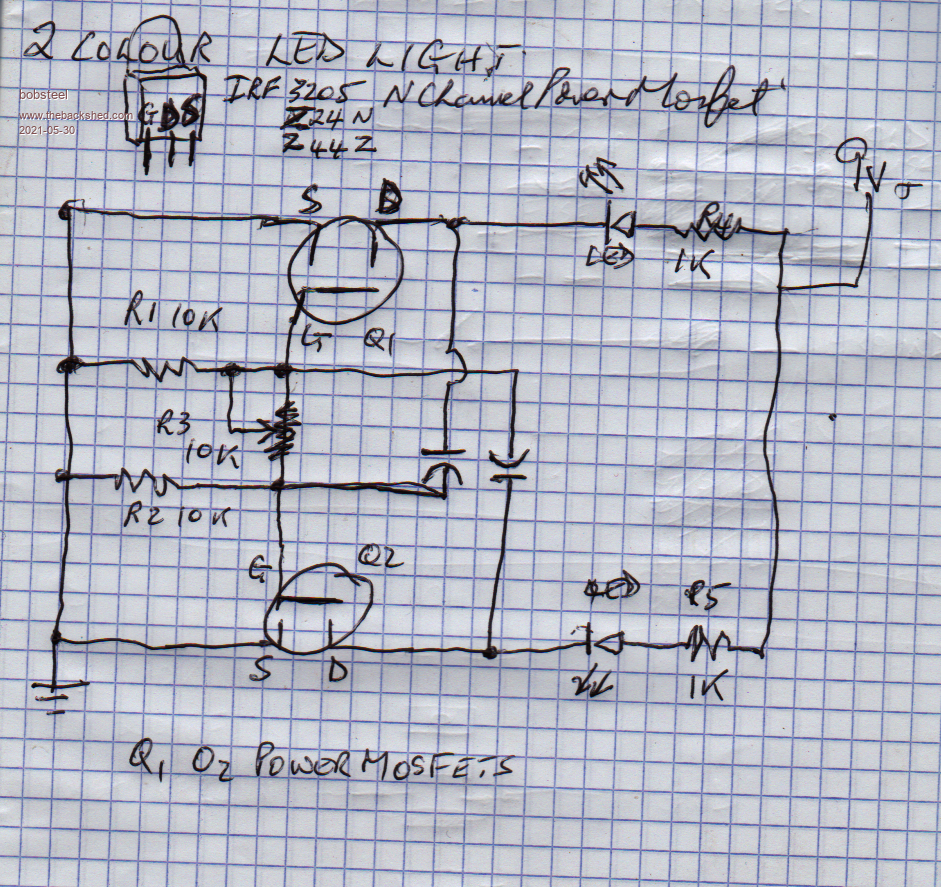 2 COLOUR LED LIGHT
bobsteel
www.thebackshed.com
2021-05-30
G D S
IRF 3205 N Channel Power Mosfet
Z24 N
Z44 Z
9V
S D
R4
LED 1K
R1 10K
G Q1
R3
10K
R2 10K
G Q2
LED R5
S D
1K
Q1 Q2 POWER MOSFETS